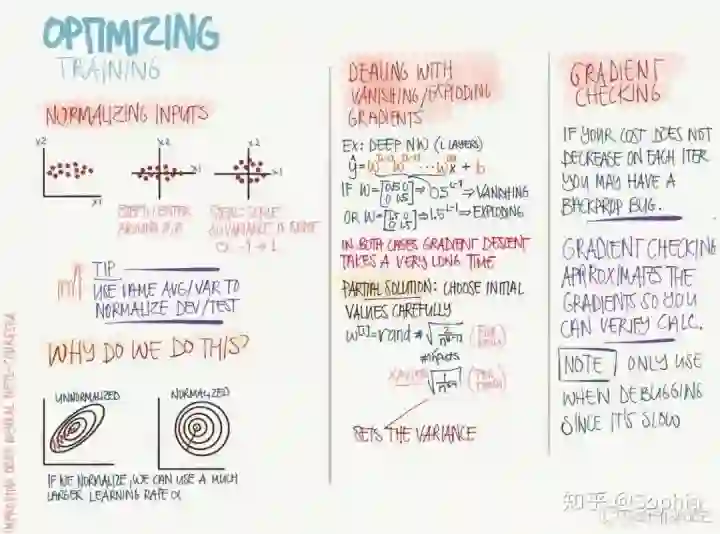 OPTIMIZING
TRAINING
NORMALIZING INPUTS
X2
X1
X2
X1
X2
X1
STEP 1: CENTER
AROUND 0,0
STEP 2: SCALE
SO VARIANCE IS SAME
-1 → 1
TIP
USE SAME AVG/VAR TO
NORMALIZE DEV/TEST
WHY DO WE DO THIS?
UNNORMALIZED
NORMALIZED
IF WE NORMALIZE, WE CAN USE A MUCH
LARGER LEARNING RATE α
DEALING WITH
VANISHING/EXPLODING
GRADIENTS
EX: DEEP NW (L LAYERS)
IF W = [0.5 0 0 0.5] ⇒ 0.5^L-1 ⇒ VANISHING
OR W = [1.5 0 0 1.5] ⇒ 1.5^L-1 ⇒ EXPLODING
IN BOTH CASES GRADIENT DESCENT
TAKES A VERY LONG TIME
PARTIAL SOLUTION: CHOOSE INITIAL
VALUES CAREFULLY
#inputs
XAVIER
SETS THE VARIANCE
GRADIENT
CHECKING
IF YOUR COST DOES NOT
DECREASE ON EACH ITER
YOU MAY HAVE A
BACKPROP BUG.
GRADIENT CHECKING
APPROXIMATES THE
GRADIENTS SO YOU
CAN VERIFY CALC.
NOTE ONLY USE
WHEN DEBUGGING
SINCE IT'S SLOW
知乎 @Sophia